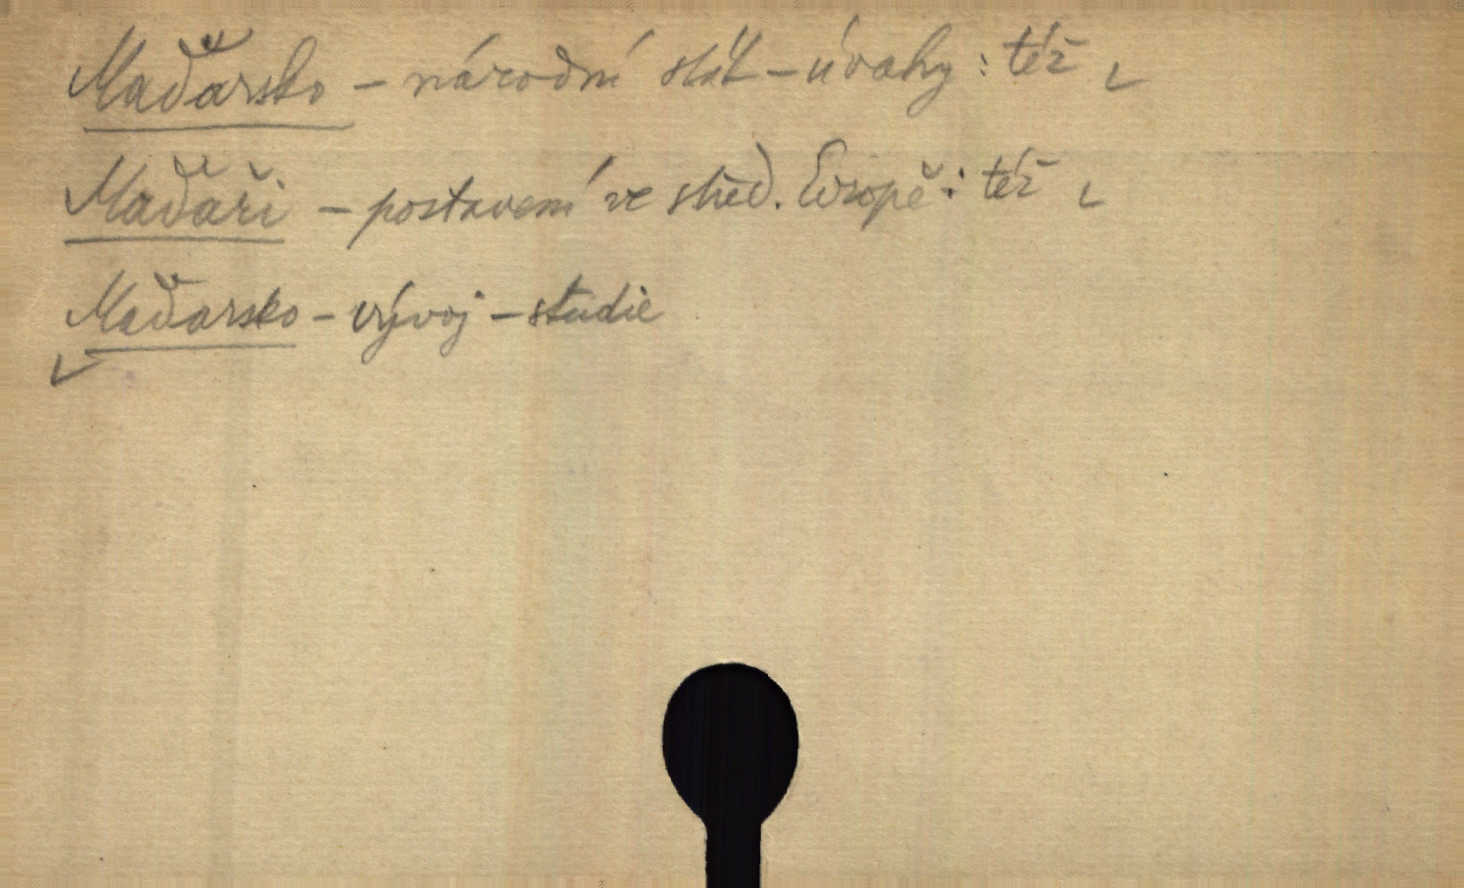 Maďarsko - národní stát - úvahy: též
Maďaři - postavení ve střed. Evropě: též
Maďarsko - vývoj - studie